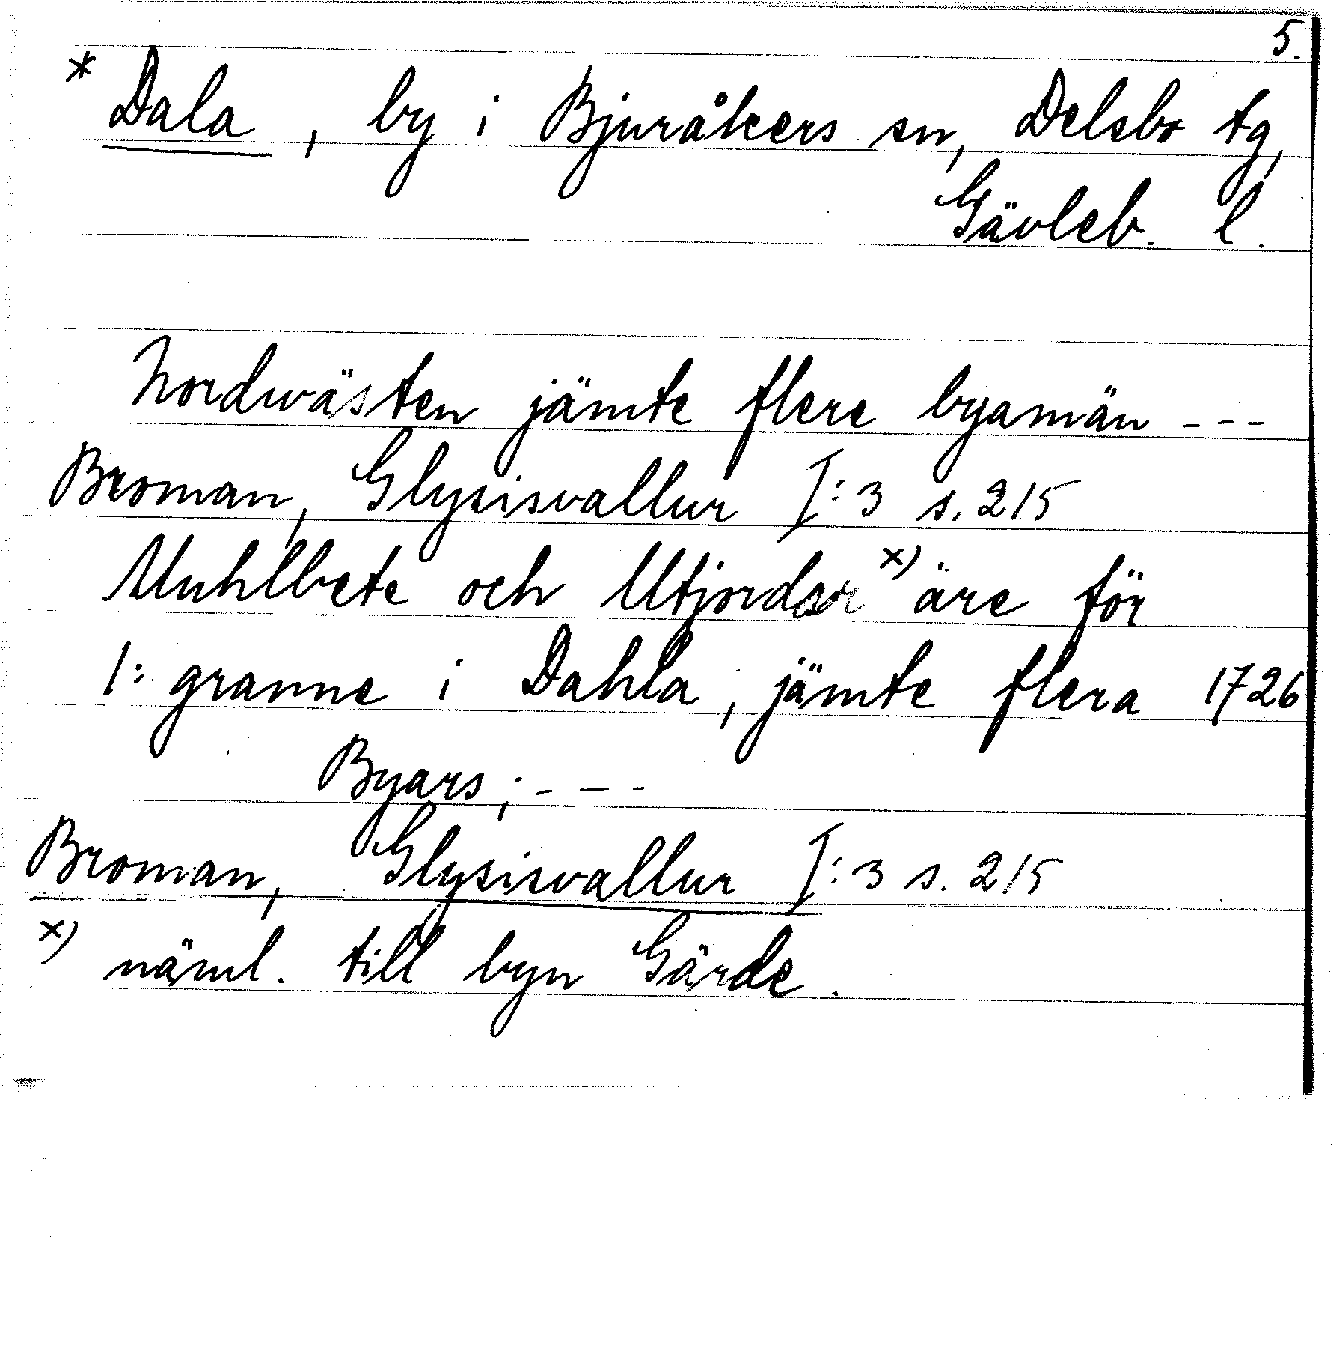 5.
* Dala, by i Bjuråkers sn, Delsbo tg,
Gävleb. l.
Nordwästen jämte flere byamän ---
Broman, Glysisvallur I:3 s. 215
Muhlbete och Utjordar x) äre för
1: granne i Dahla, jämte flera 1726
Byars; ---
Broman, Glysisvallur I:3 s. 215
x) näml. till byn Gärde.